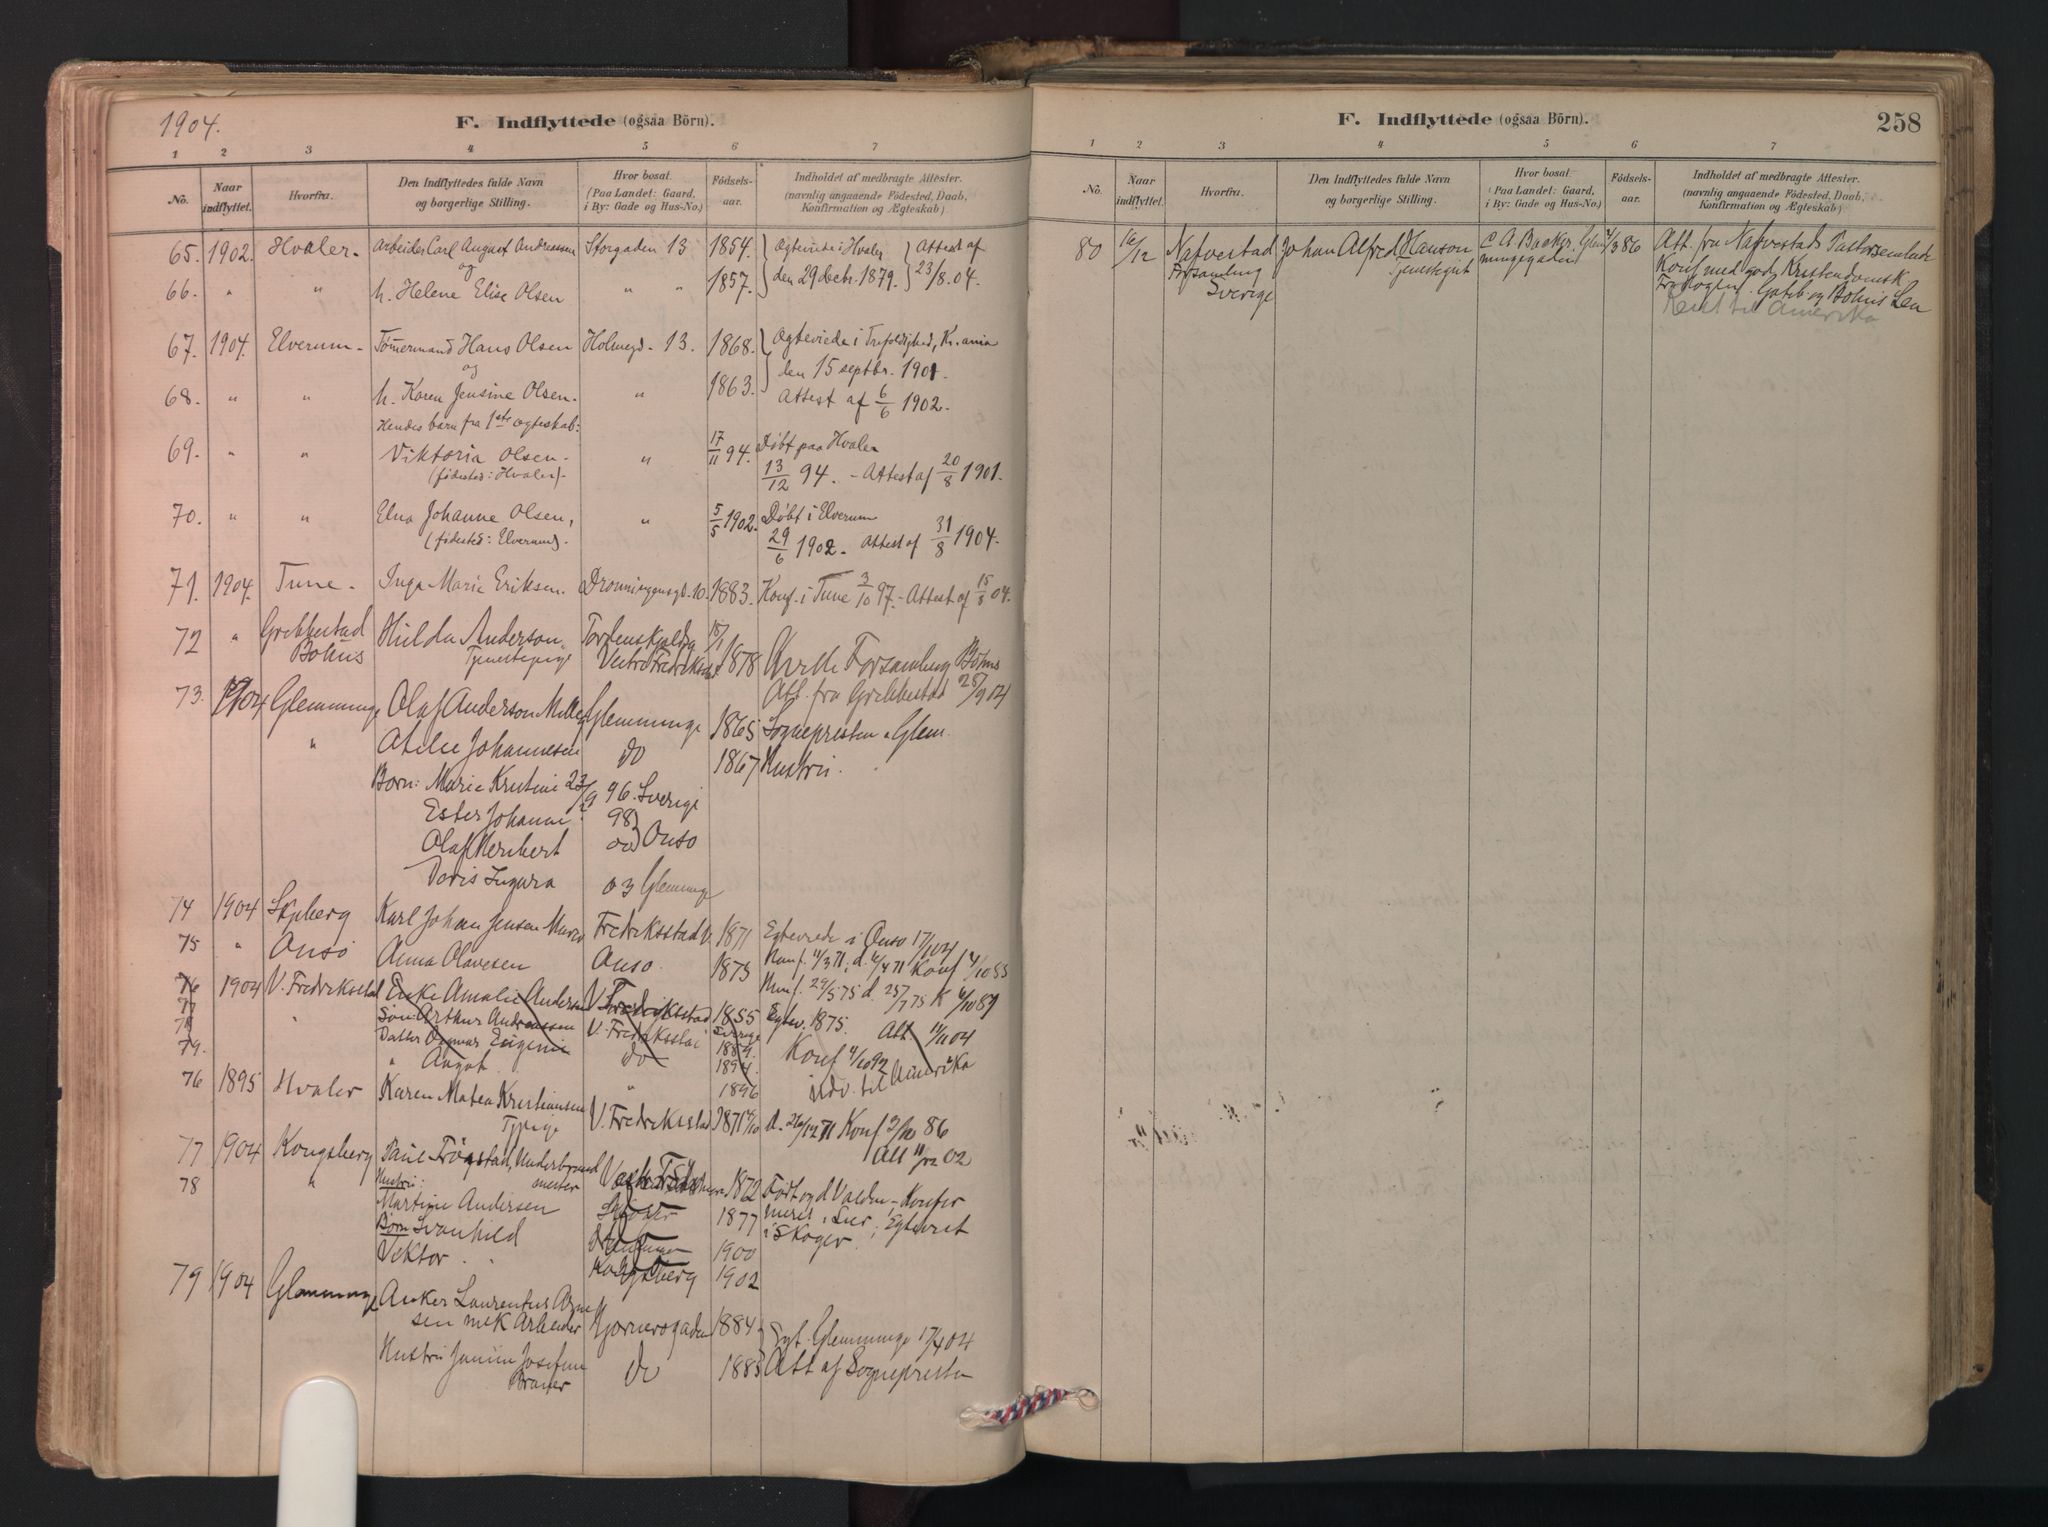 1904.
F. Indflyttede (ogsaa Börn).
1 2 3 4 5 6 7
No. Naar indflyttet. Hvorfra. Den Indflyttedes fulde Navn og borgerlige Stilling. Hvor bosat. (Paa Landet: Gaard, i By: Gade og Hus-No.) Födsels-aar. Indholdet af medbragte Attester. (navnlig angaaende Födested, Daab, Konfirmation og Ægteskab)
65. 1902. Hvaler- Arbeider Carl August Andreassen Storgaden 13 1854. Ægteviede i Hvaler Attest af
og den 29 decbr. 1879. 23/8. 04.
66. " " h. Helene Elise Olsen " " 1857.
67. 1904. Elverum- Tömermand Hans Olsen Holmegd- 13. 1868. Ægteviede i Trefoldighed, Kr.ania
og den 15 septbr. 1901.
68. " " h. Karen Jensine Olsen. " 1863. Attest af 6/6 1902.
Hendes barn fra 1ste ægteskab:
69. " " Viktoria Olsen- " 17/11 94. Döbt paa Hvaler
(födested: Hvaler). 13/12 94. - Attest af 20/8 1901.
70. " " Elna Johanne Olsen, " 5/5 1902. Döbt i Elverum
(födested: Elverum). 29/6 1902. Attest af 31/8 1904.
71. 1904. Tune- Inga Marie Eriksen. Dronningensgd. 10. 1883. Konf. i Tune 3/10 97. - Attest af 15/8 04.
72 " Grebbestad Hilda Anderson Tordenskjoldsg 15/1
Bohus Tjenestepige Vestre Fredriksst 1878 Forsamling Bohus
73. 1904 Glemminge Olaf Anderson Glemminge 1865 Att. fra Grebbestad 28/9 04
Sognepresten i Glem.
" Johannesen do 1867 Hustru.
Børn: Marie Kristine 23/9 96. Sverige
Ester Johanne 98
Olaf Onsø
Doris Ingvra 03 Glemminge
74 1904 Skjeberg Karl Johan Jensen Fredriksstad V. 1871 Egteviede i Onsø 17/1 04
75 " Onsø Anna Olavesen Onsø. 1875 4/3 71, d. 6/4 71 Konf 4/10 85
76 1904 V. Fredriksstad Amalie Anderson V. Fredriksstad 1855 29/5 75 d. 25/7 75 K 6/10 89
77 " Søn: Arthur Andreassen V. Fredriksstad Sverige Egtev. 1875. Att 11/11 04
78 Datter Dagmar Eugenie do 1884. Konf 4/10 92
79. " August " 1894. udv. til Amerika
1896
76 1895 Hvaler Karen Matea Kristiansen V. Fredriksstad 1871 4/10 d. 26/12 71 Konf 2/10 86
Tjpige Att 02
77 1904 Kongsberg Paul Frögstad, Underbrand Vestre 1872 Født og d Valden, Konfir
78 " Hustru: mester 1877 meret i Lier; Egteviet
Martine Andersen i Skoger.
Børn Svanhild 1900
Viktor Kongsberg 1902
79 1904 Glemminge Anker Laurentius
sen mek Arbeider Bjørnerogaden 1884 Egt. Glemminge 17/4 04
Hustru Josefine do 1883 Att af Sognepresten
F. Indflyttede (ogsaa Börn).
258
1 2 3 4 5 6 7
No. Naar indflyttet. Hvorfra. Den Indflyttedes fulde Navn og borgerlige Stilling. Hvor bosat. (Paa Landet: Gaard, i By: Gade og Hus-No.) Födsels-aar. Indholdet af medbragte Attester. (navnlig angaaende Födested, Daab, Konfirmation og Ægteskab)
80 16/12 Nafvestad Johan Alfred Hanson C. A. Backgr. Glem 4/3 86 Att. fra Nafvestads Pastorsembede
Forsamling Tjenestegut mingegaden Konf med god Kristendomsk
Sverige Göteb. og Bohus Len
Reist til Amerika